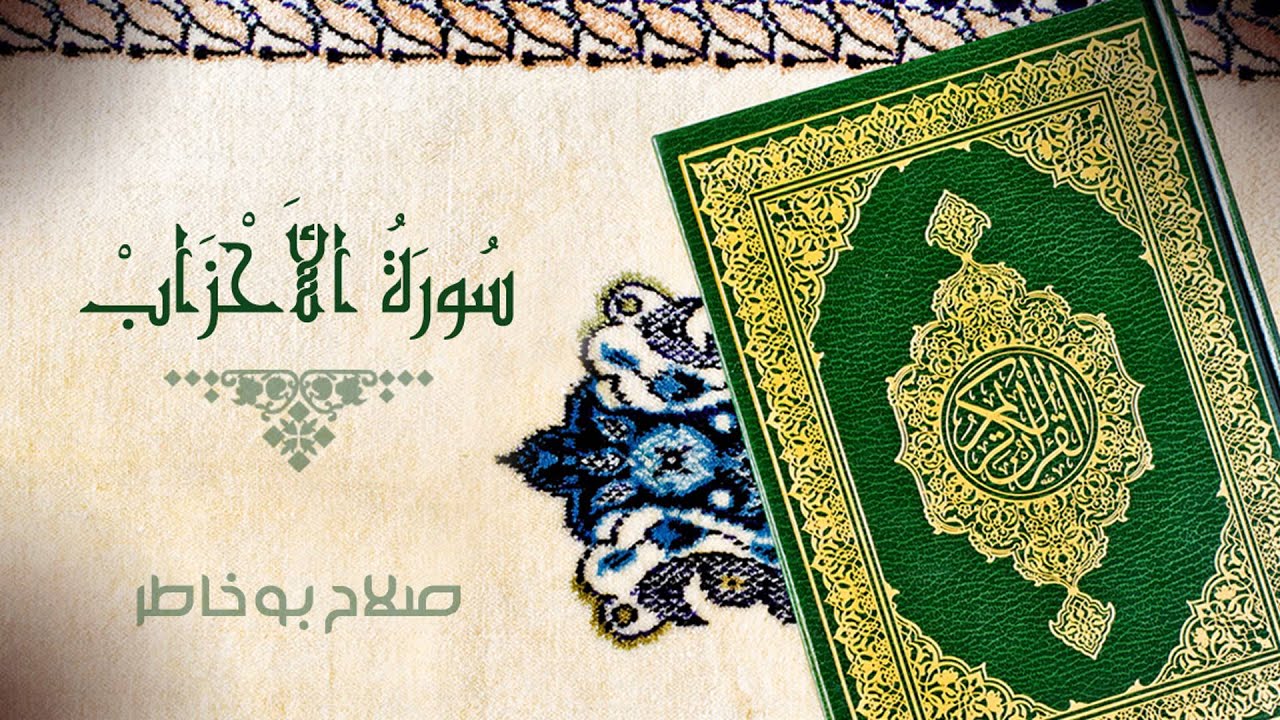 سُورَةُ الأَحْزَابْ
صلاح بوخاطر
القرآن الكريم